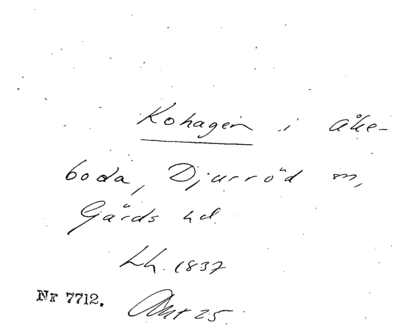 Kohagen i Åke-
boda, Djurröd m,
Gärds hd.
Lh. 1837
Nr 7712. Akt 25.